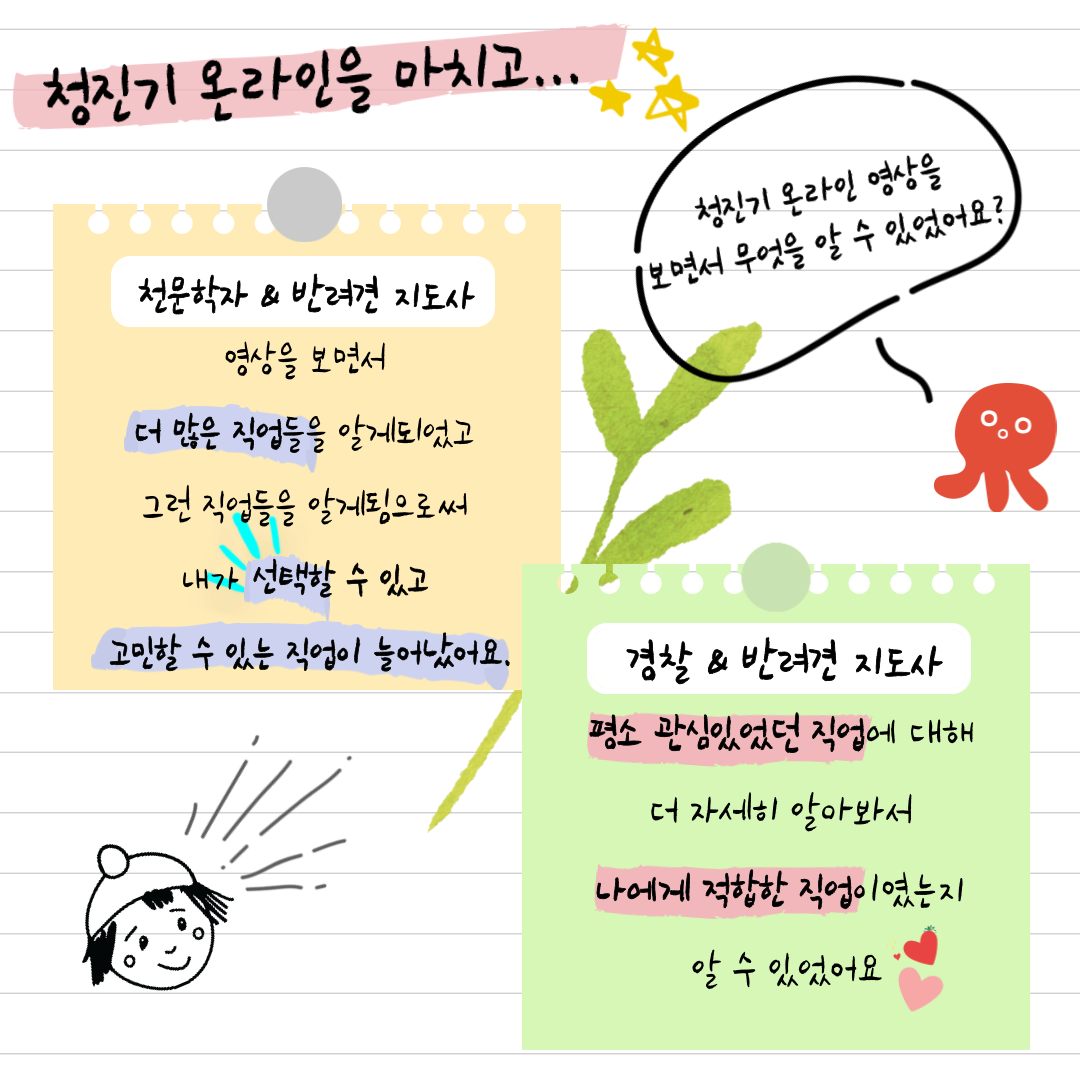 청진기 온라인을 마치고...
청진기 온라인 영상을
보면서 무엇을 알 수 있었어요?
천문학자 & 반려견 지도사
영상을 보면서
더 많은 직업들을 알게되었고
그런 직업들을 알게됨으로써
내가 선택할 수 있고
고민할 수 있는 직업이 늘어났어요.
경찰 & 반려견 지도사
평소 관심있었던 직업에 대해
더 자세히 알아봐서
나에게 적합한 직업이였는지
알 수 있었어요